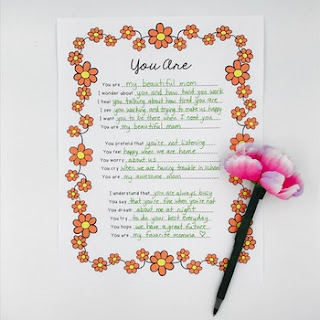 You Are
You are my beautiful mom
I wonder about you and how hard you work
I hear you talking about how tired you are
I see you working and trying to make us happy
I want you to be there when I need you
You are my beautiful mom
You pretend that you're not listening
You feel happy when we are home
You worry about us
You cry when we are having trouble in school
You are my awesome mom
I understand that you are always busy
You say that you're fine when you're not
You dream about me at night
You try to do your best everyday
You hope we have a great future
You are my favorite momma ♡